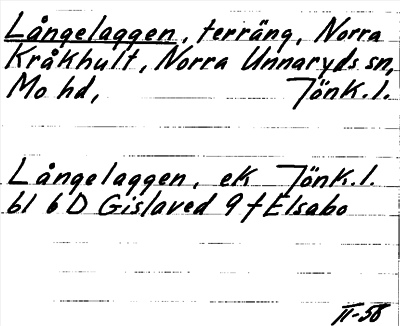 Långelaggen, terräng, Norra
Kråkhult, Norra Unnaryds sn,
Mo hd, Jönk.l.
Långelaggen, ek Jönk.l.
bl 6D Gislaved 9f Elsabo
II-58